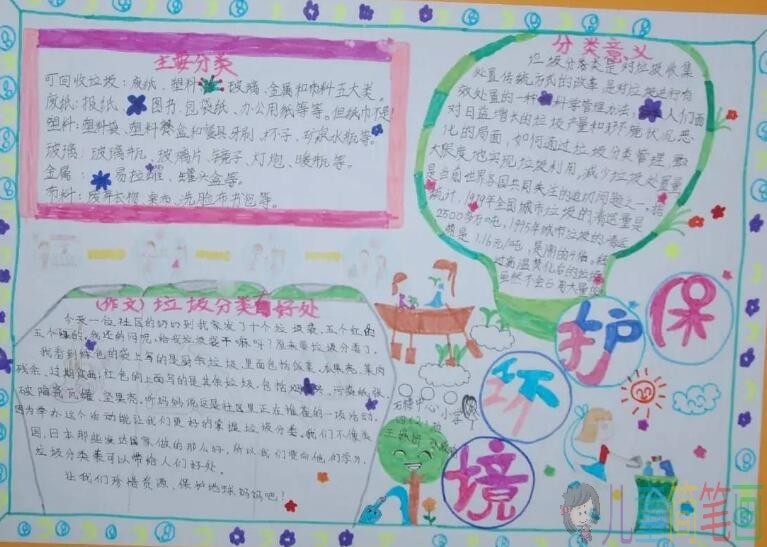 主要分类
可回收垃圾：废纸、塑料、玻璃、金属和布料五大类。
废纸：报纸、图书、包装纸、办公用纸等等。但纸巾不是！
塑料：塑料袋、塑料餐盒和餐具牙刷、杯子、矿泉水瓶等。
玻璃：玻璃瓶、玻璃片、镜子、灯炮、暖瓶等。
金属：易拉罐、罐头盒等。
布料：废弃衣物、桌布、洗脸布书包等。
分类意义
垃圾分类是对垃圾收集
处置传统方式的改革，是对垃圾进行有
效处置的一种科学管理方法。人们面
对日益增长的垃圾产量和环境状况恶
化的局面，如何通过垃圾分类管理，最
大限度地实现垃圾利用，减少垃圾处置量
是当前世界各国共同关注的迫切问题之一。据
统计，1979年全国城市垃圾的清运量是
2500多万吨，1995年城市垃圾的清运
(作文) 垃圾分类的好处
今天一位社区的奶奶到我家发了十个垃圾袋，五个红的
五个绿的，我还纳闷呢，给我垃圾袋干嘛呀？原来要垃圾分类了。
我看到绿色的袋上写的是厨余垃圾，里面包括饭菜、瓜果壳、菜肉
残余、过期食品；红色的上面写的是其余垃圾，包括、污染纸张、
因为举办这个活动能让我们更好的掌握垃圾分类。我们不像美
国、日本那些发达国家做的那么好，所以我们要向他们学习，
垃圾分类可以带给人们好处。
让我们珍惜资源、保护地球妈妈吧！
保
护
环
境
中心小学
儿童简笔画